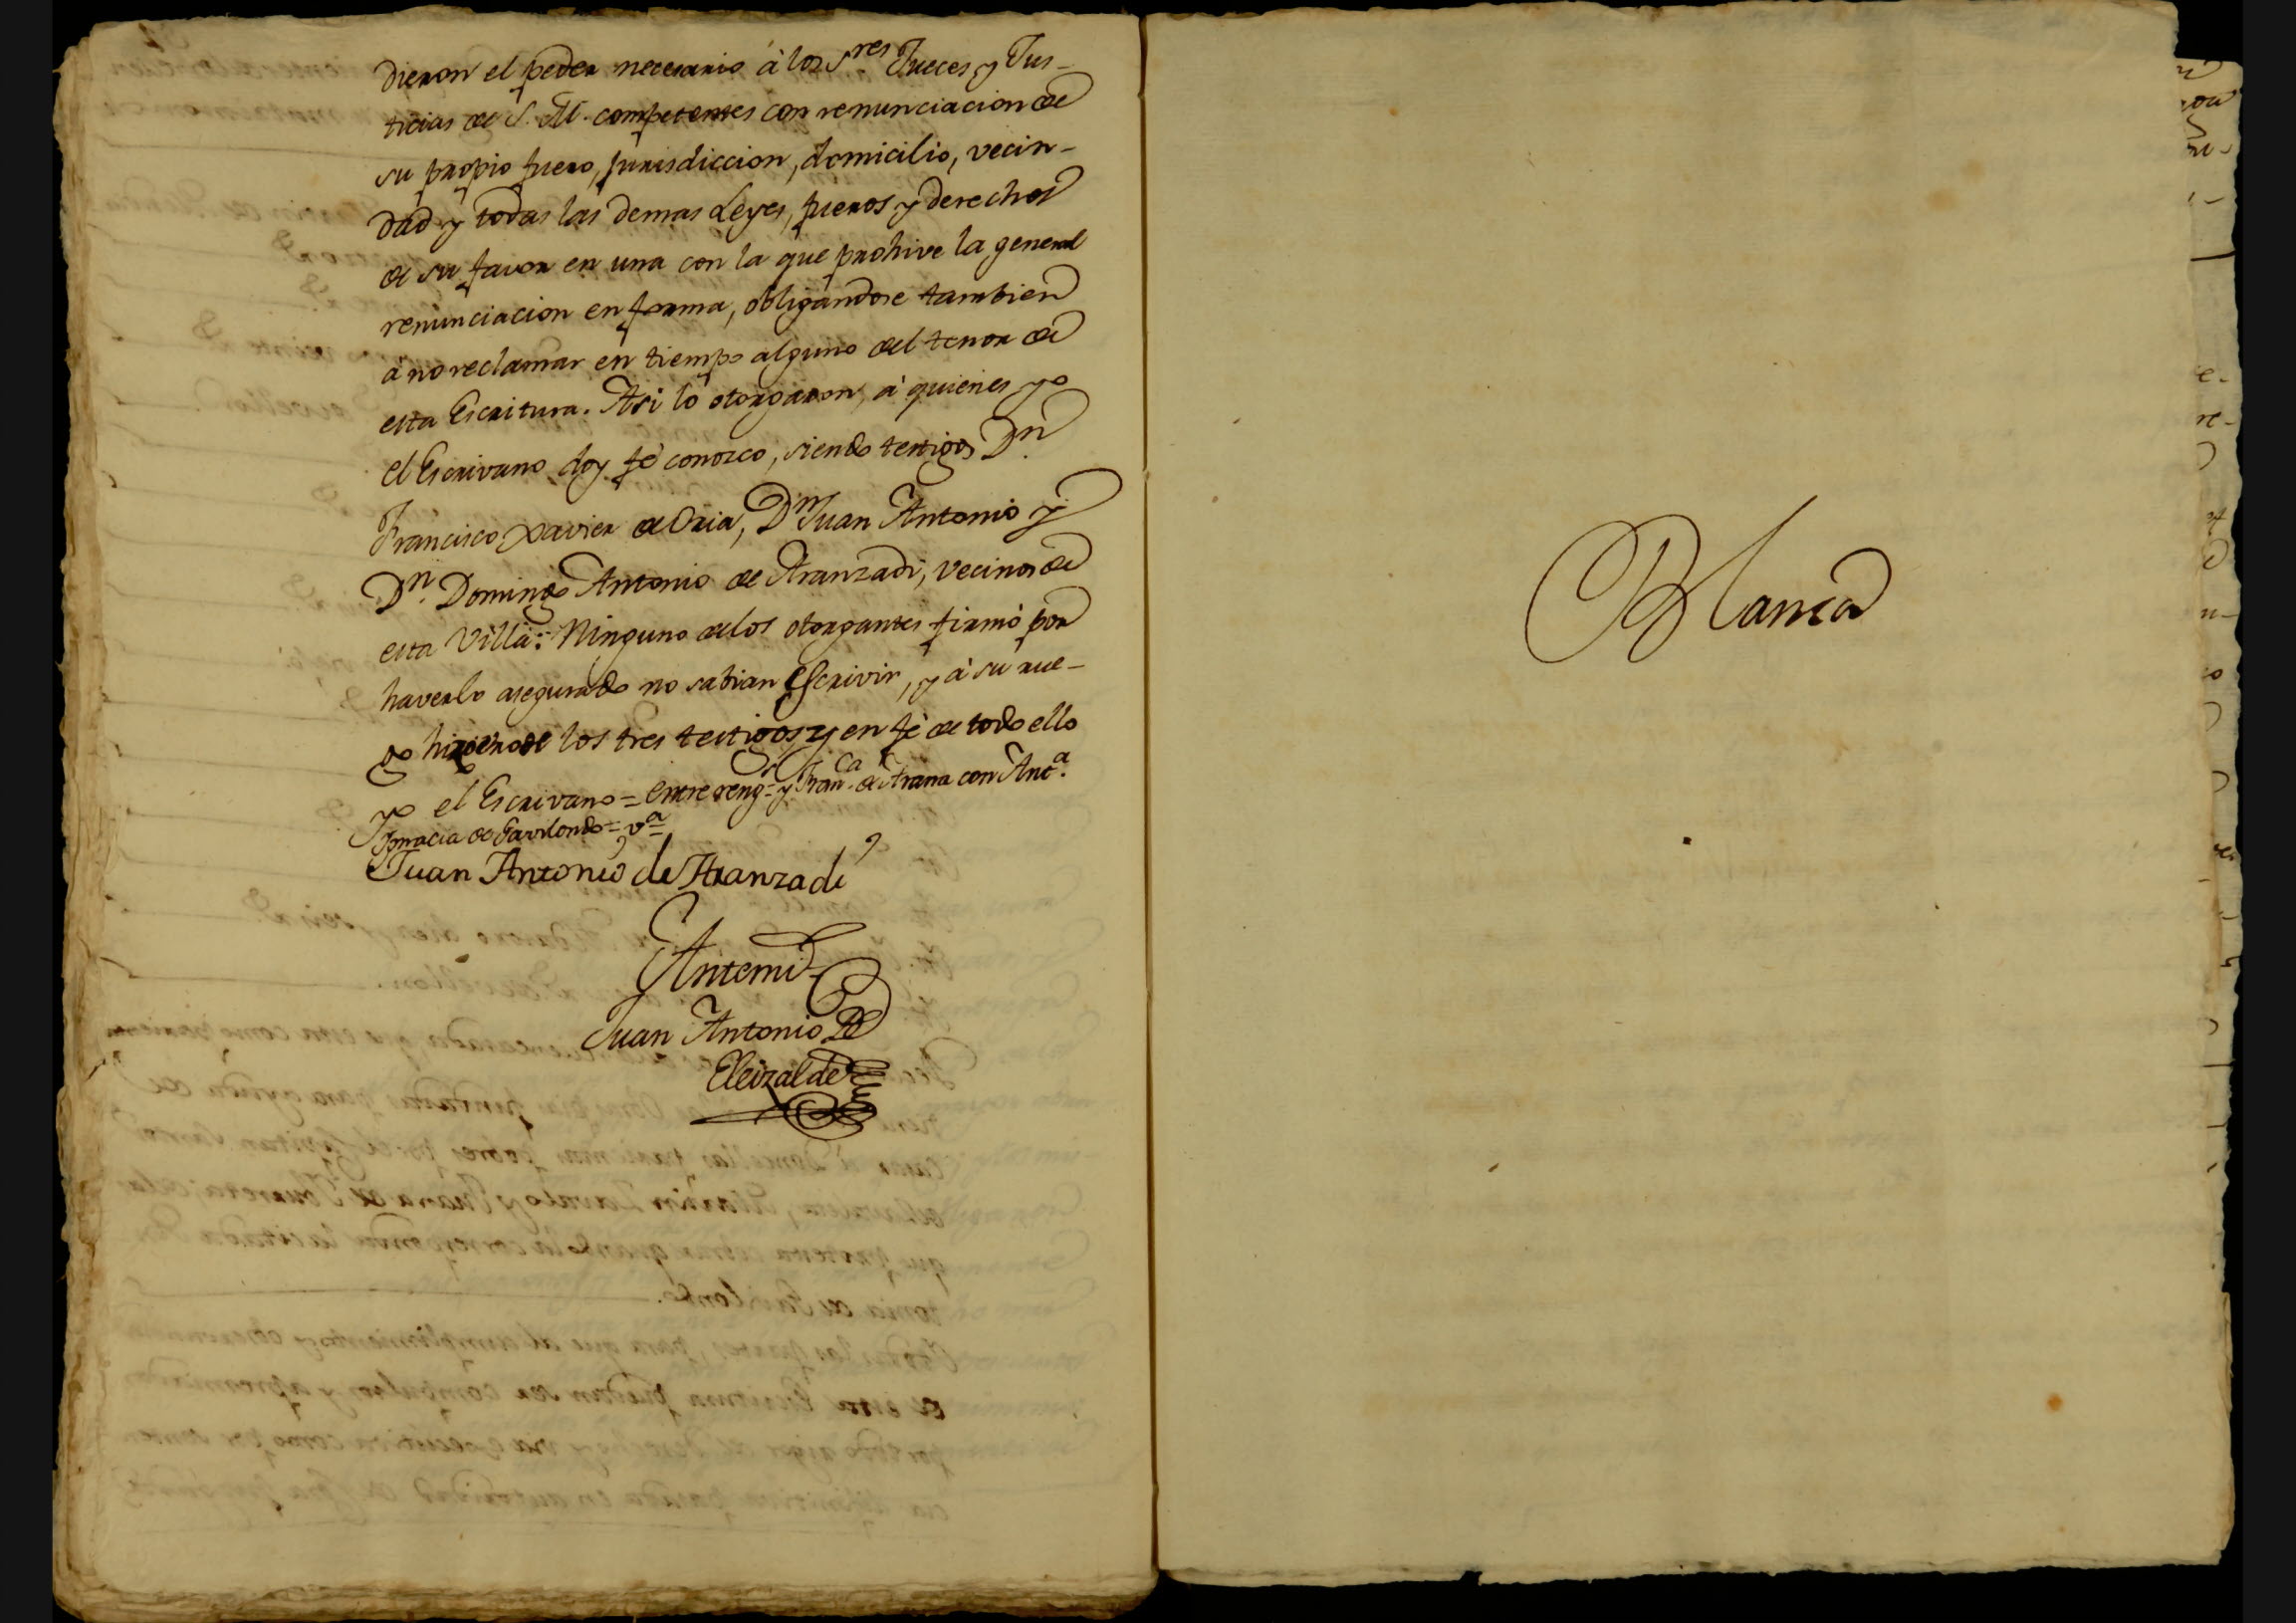 dieron el poder necesario à los S.res Jueces y Jus-
ticias de S. M. competentes con renunciacion de
su propio fuero, jurisdiccion, domicilio, vecin-
dad y todas las demas Leyes, fueros y derechos
de su favor en una con la que prohive la general
renunciacion en forma, obligandose tambien
à no reclamar en tiempo alguno del tenor de
esta Escritura. Asi lo otorgaron, à quienes yo
el Escrivano doy fè conozco, siendo testigos D.n
Francisco Xavier de Oria, D.n Juan Antonio y
D.n Domingo Antonio de Aranzadi, vecinos de
esta Villa: Ninguno de los otorgantes firmò por
haverlo asegurado no sabian Escrivir, y à su rue-
go los tres testigos, y en fè de todo ello
yo el Escrivano = Entre reng.s y Fran.ca de Arana con Ant.a
Ignacia de Gavilondo = v.a
Juan Antonio de Aranzadi
Antemi
Juan Antonio de
Eleizalde
Blanca